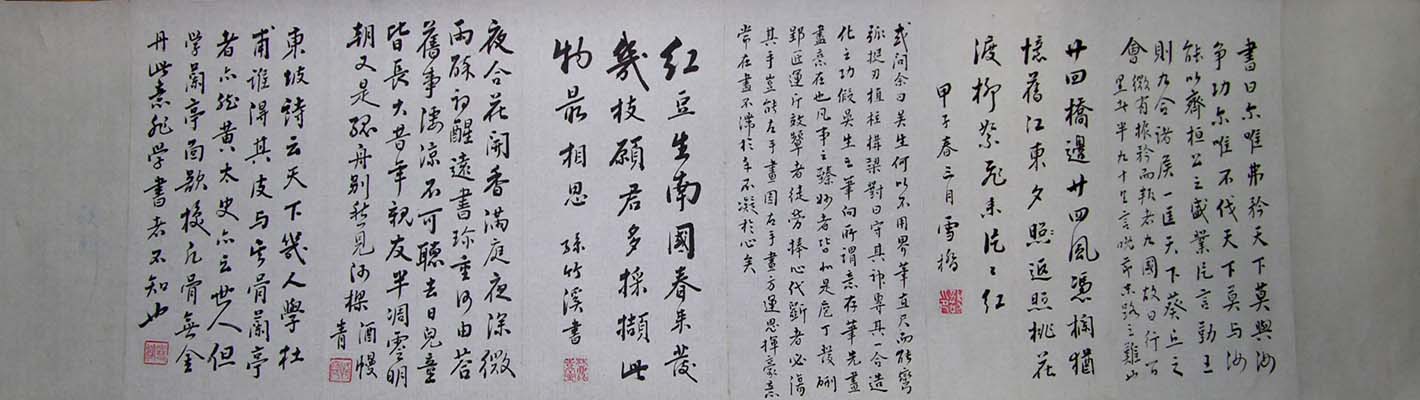 書曰尔唯弗矜天下莫與汝
争功尔唯不伐天下莫与汝
能以齊桓公之盛業片言勤王
則九合諸侯一匡天下葵丘之
會微有振矜而叛者九國故曰行百
里者半九十里言晚節末路之難也
廿四橋邊廿四風憑欄猶
憶舊江東夕照返照桃花
渡柳絮飛来片〻紅
甲子春三月雪橋
或問余曰吴生何以不用界筆直尺而能彎
弧挺刃植柱構梁對曰守其神專其一合造
化之功假吴生之筆向所謂意存筆先畫
盡意在也凡事之臻妙者皆如是庖丁發硎
郢匠運斤效顰者徒勞捧心代斲者必傷
其手豈能左手畫圓右手畫方運思揮毫意
常在畫不滞於手不凝於心矣
紅豆生南國春来發
幾枝願君多採擷此
物最相思 孫竹溪書
夜合花開香滿庭夜深微
雨酥初醒遠書珍重何由答
舊事凄涼不可聽去日兒童
皆長大昔年親友半凋零明
朝又是孤舟别愁見河樑酒幔
青
東坡詩云天下幾人學杜
甫誰得其皮与其骨蘭亭
者亦然黄太史亦云世人但
学蘭亭面欲换凡骨無金
丹此意非学書者不知也